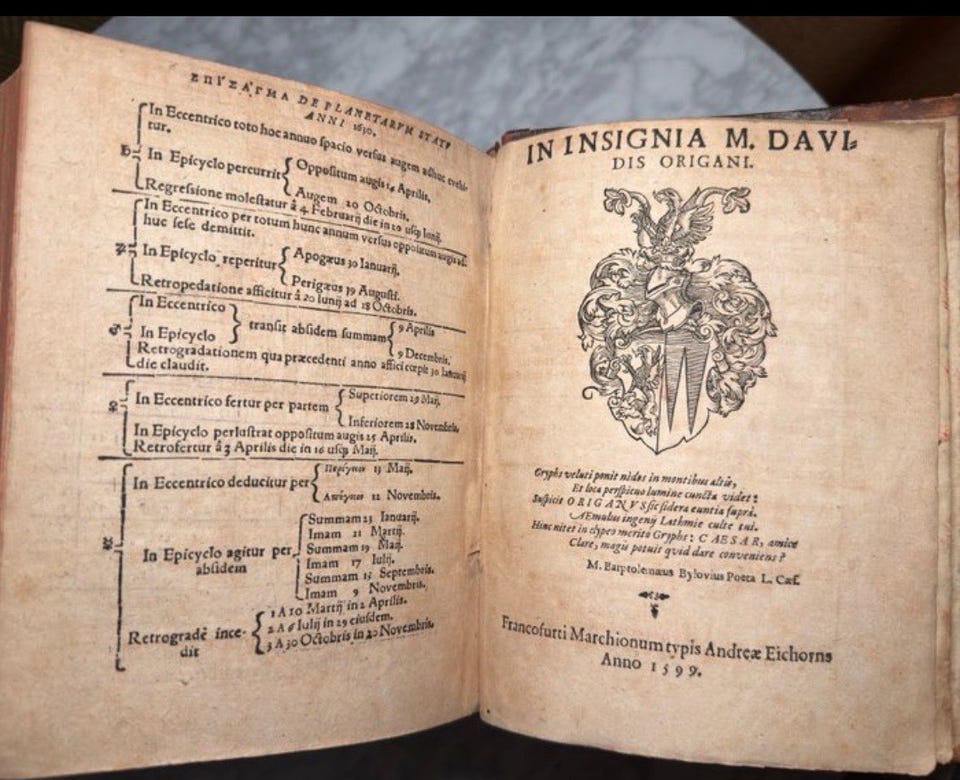 ΕΠΙΣΑΓΜΑ DE PLANETARVM STATV
ANNI 1630.
♄ In Eccentrico toto hoc annuo spacio versus augem adhuc evehi-
tur.
In Epicyclo percurrit Oppositum augis 14 Aprilis.
Augem 20 Octobris.
Regressione molestatur â 4 Februarij die in 20 usq; Iunij.
♃ In Eccentrico per totum hunc annum versus oppositum augis ad-
huc sese demittit.
In Epicyclo reperitur Apogæus 30 Ianuarij.
Perigæus 19 Augusti.
Retropedatione afficitur â 20 Iunij ad 18 Octobris.
♂ In Eccentrico
In Epicyclo
transit absidem summam 9 Aprilis
9 Decembris.
Retrogradationem qua præcedenti anno affici cœpit 30 Ianuarij
die claudit.
♀ In Eccentrico fertur per partem Superiorem 29 Maij.
Inferiorem 28 Novembris.
In Epicyclo perlustrat oppositum augis 25 Aprilis.
Retrofertur â 3 Aprilis die in 16 usq; Maij.
☿ In Eccentrico deducitur per Περίγειον 13 Maij.
Ἀπόγειον 12 Novembris.
In Epicyclo agitur per
absidem
Summam 23 Ianuarij.
Imam 21 Martij.
Summam 19 Maij.
Imam 17 Iulij.
Summam 15 Septembris.
Imam 9 Novembris.
Retrogradè ince-
dit
1 A 10 Martij in 2 Aprilis.
2 A 6 Iulij in 29 eiusdem.
3 A 30 Octobris in 20 Novembris.
IN INSIGNIA M. DAVI-
DIS ORIGANI.
Gryphs veluti ponit nidos in montibus altis,
Et loca perspicuo lumine cuncta videt:
Suspicit ORIGANVS sic sidera euntia suprà.
Æmulus ingenij Lathmie culte tui.
Hinc nitet in clypeo meritò Gryphs: CAESAR, amice
Clare, magis potuit quid dare conveniens?
M. Barptolemæus Bylovius Poeta L. Cæs.
Francofurti Marchionum typis Andreæ Eichorns
Anno 1599.